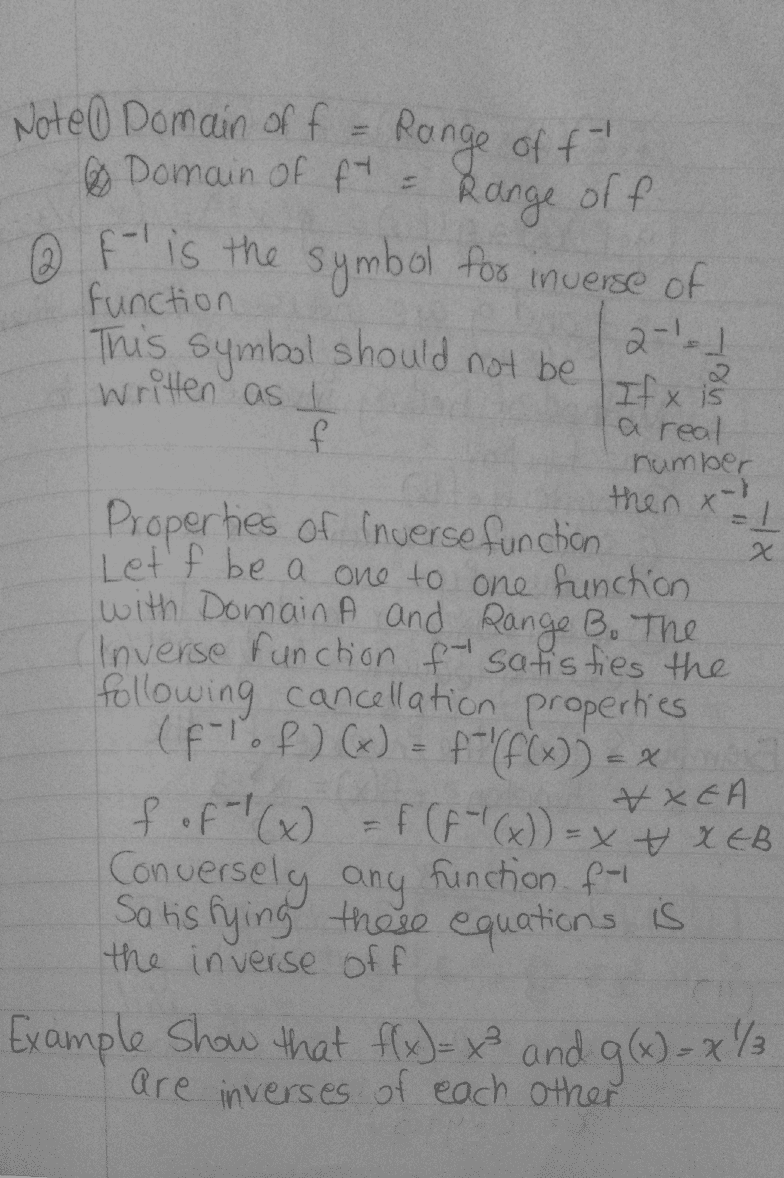 Note① Domain of f = Range of f⁻¹
Domain of f⁻¹ = Range of f
② f⁻¹ is the symbol for inverse of
function
This symbol should not be
written as 1/f
2⁻¹ = 1/2
If x is
a real
number
then x⁻¹ = 1/x
Properties of Inverse function
Let f be a one to one function
with Domain A and Range B. The
Inverse function f⁻¹ satisfies the
following cancellation properties
(f⁻¹∘f)(x) = f⁻¹(f(x)) = x
∀ x∈A
f∘f⁻¹(x) = f(f⁻¹(x)) = x ∀ x∈B
Conversely any function f⁻¹
Satisfying these equations is
the inverse of f
Example Show that f(x) = x³ and g(x) = x^1/3
are inverses of each other